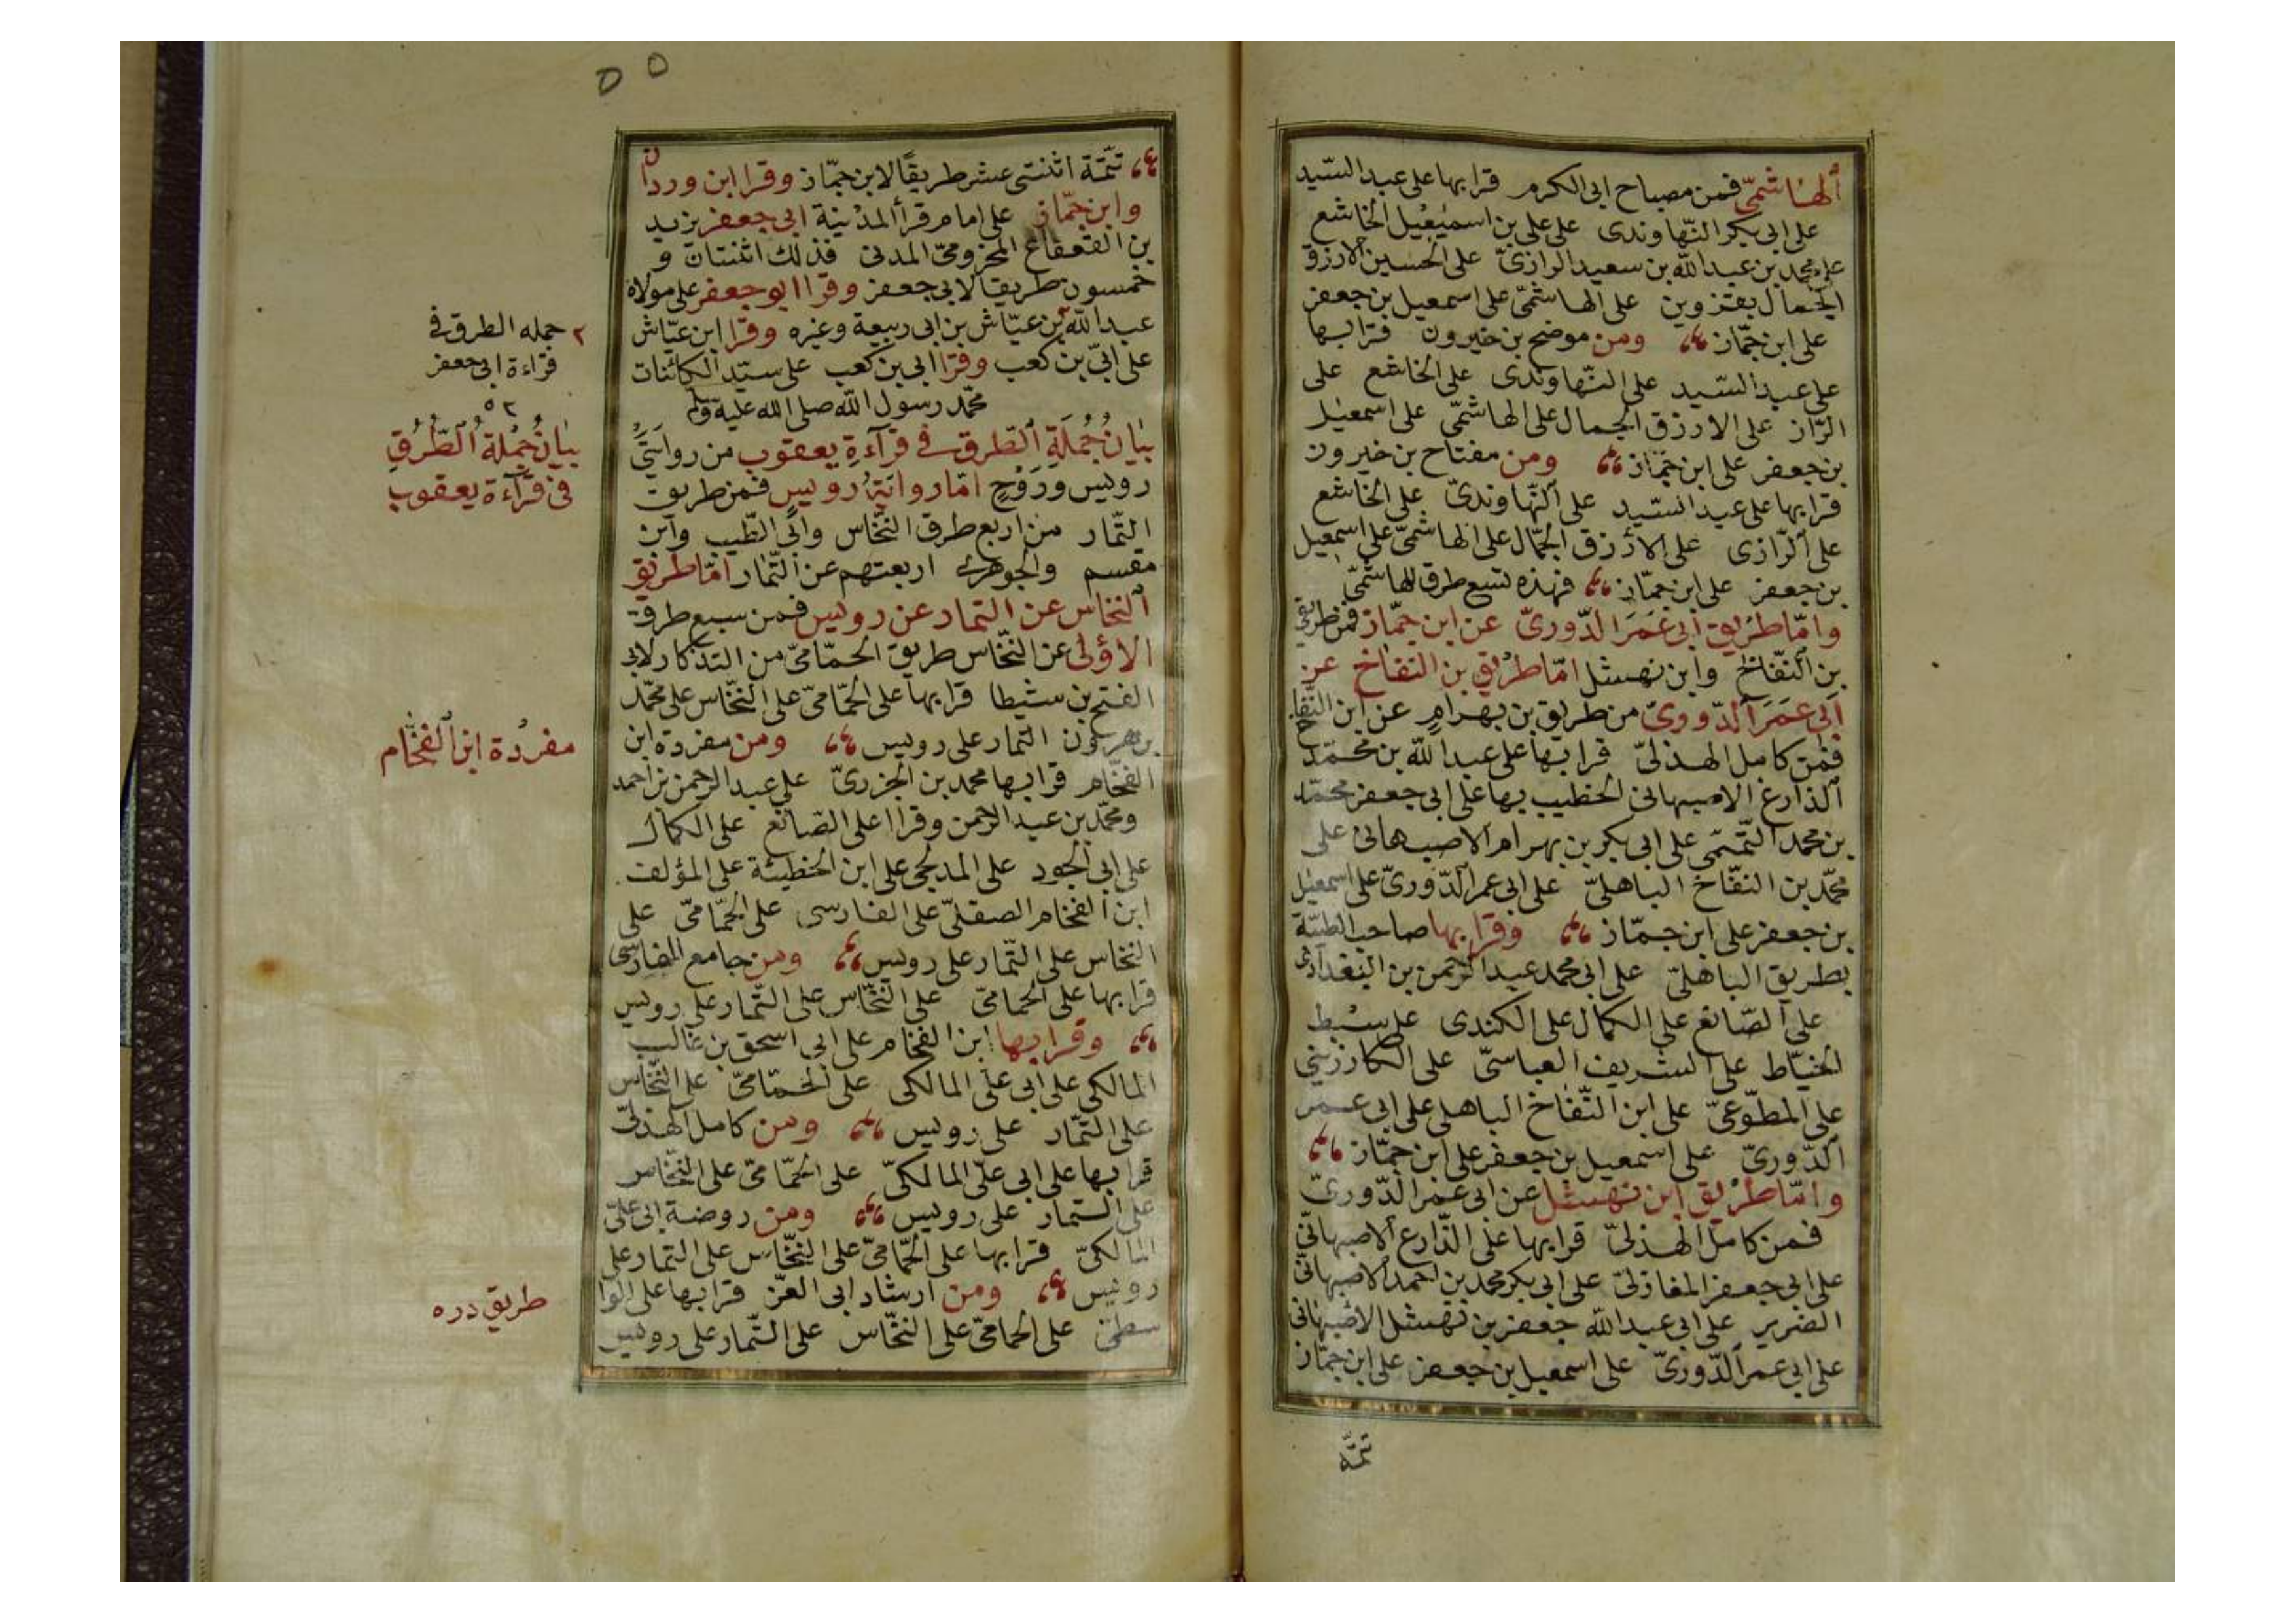 الهاشمىّ فمن مصباح ابى الكرم قرا بها على عبد السّيد
على ابى بكر النّهاوندى على على بن اسمٰعيل الخاشع
على محمد بن عبد اللّه بن سعيد الرازىّ على الحسين الازرق
الجّمال بقزوين على الهاشمّى على اسمعيل بن جعفر
على ابن جمّاز ومن موضح بن خيرون قرا بها
على عبد السّيد على النّهاوندى على الخاشع على
الرّاز على الازرق الجمال على الهاشمّى على اسمعيل
بن جعفر على ابن جمّاز ومن مفتاح بن خيرون
قرا بها على عبد السّيد على النّهاوندىّ على الخاشع
على الرّازى على الازرق الجمّال على الهاشمىّ على اسمعيل
بن جعفر على ابن جمّاز فهذه تسع طرق للهاشمّى
وامّا طريق ابى عمر الدّورىّ عن ابن جمّاز فمن طريقى
بن النفّاخ وابن نهشل امّا طريق بن النفاخ عن
ابى عمر الدّورىّ من طريق بن بهرام عن ابن النّفاخ
فمن كامل الهذلىّ قرا بها على عبد اللّه بن محمّد
الذارع الاصبهانى الخطيب بها على ابى جعفر محمّد
بن محمد التّمّيمى على ابى بكر بن بهرام الاصبهانى على
محمّد بن النفّاخ الباهلىّ على ابى عمر الدّورىّ على اسمعيل
بن جعفر على ابن جمّاز وقرا بها صاحب الطيّبة
بطريق الباهلىّ على ابى محمد عبد الرّحمن بن البغدادى
على الصّائغ على الكمال على الكندى على سبط
الخيّاط على الشريف العباسىّ على الكارزينى
على المطّوعىّ على ابن النّفّاخ الباهلى على ابى عمر
الدّورىّ على اسمعيل بن جعفر على ابن جمّاز
وامّا طريق ابن نهشل عن ابى عمر الدّورىّ
فمن كامل الهذلىّ قرا بها على الذّارع الاصبهانىّ
على ابى جعفر المغازلىّ على ابى بكر محمد بن احمد الاصبهانىّ
الضرير على ابى عبد اللّه جعفر بن نهشل الاصبهانى
على ابى عمر الدّورىّ على اسمعيل بن جعفر على ابن جمّاز
تتمّة
٥٥
تتمّة اثنتى عشر طريقًا لابن جمّاز وقرا ابن وردان
وابن جمّاز على امام قرأ المدينة ابى جعفر يزيد
بن القعقاع المخزومىّ المدنى فذلك اثنتان و
خمسون طريقا لابى جعفر وقرا ابو جعفر على مولاه
عبد اللّه بن عيّاش بن ابى ربيعة وغيره وقرا ابن عيّاش
على ابىّ بن كعب وقرا ابى بن كعب على سيّد الكائنات
محمّد رسول اللّه صلى الله عليه وسلم
بيان جملة الطرق فى قرآءة يعقوب من روايتى
رويس وروح امّا رواية رويس فمن طريق
التّمار من اربع طرق النّخّاس وابى الطّيب وابن
مقسم والجوهرى اربعتهم عن التّمار امّا طريق
النخاس عن التمار عن رويس فمن سبع طرق
الاولى عن النّخّاس طريق الحمّامىّ من التذكار لابى
الفتح بن شيطا قرا بها على الحمّامىّ على النّخّاس على محمّد
بن هرون التمار على رويس ومن مفردة ابن
الفخّام قرا بها محمد بن الجزرىّ على عبد الرحمن بن احمد
ومحمّد بن عبد الرحمن وقراا على الصّائغ على الكمال
على ابى الجود على المدلجى على ابن الخطيئة على المؤلف
ابن الفخّام الصقلىّ على الفارسى على الحمّامىّ على
النخاس على التّمار على رويس ومن جامع الفارسى
قرا بها على الحمامىّ على النّخّاس على التّمار على رويس
وقرا بها ابن الفخام على ابى اسحق بن غالب
المالكى على ابى علىّ المالكى على الحمّامىّ على النّخّاس
على التّمّار على رويس ومن كامل الهذلىّ
قرا بها على ابى علىّ المالكىّ على الحمّامىّ على النّخّاس
على التمار على رويس ومن روضة ابى علىّ
المالكىّ قرا بها على الحمّامىّ على النّخّاس على التمار على
رويس ومن ارشاد ابى العزّ قرا بها على الوا
سطىّ على الحمامىّ على النخّاس على التّمار على رويس
٢ جمله الطرق فى
قراءة ابى جعفر
٥٢
بيان جملة الطّرق
فى قرآءة يعقوب
مفردة ابن الفخّام
طريق دره